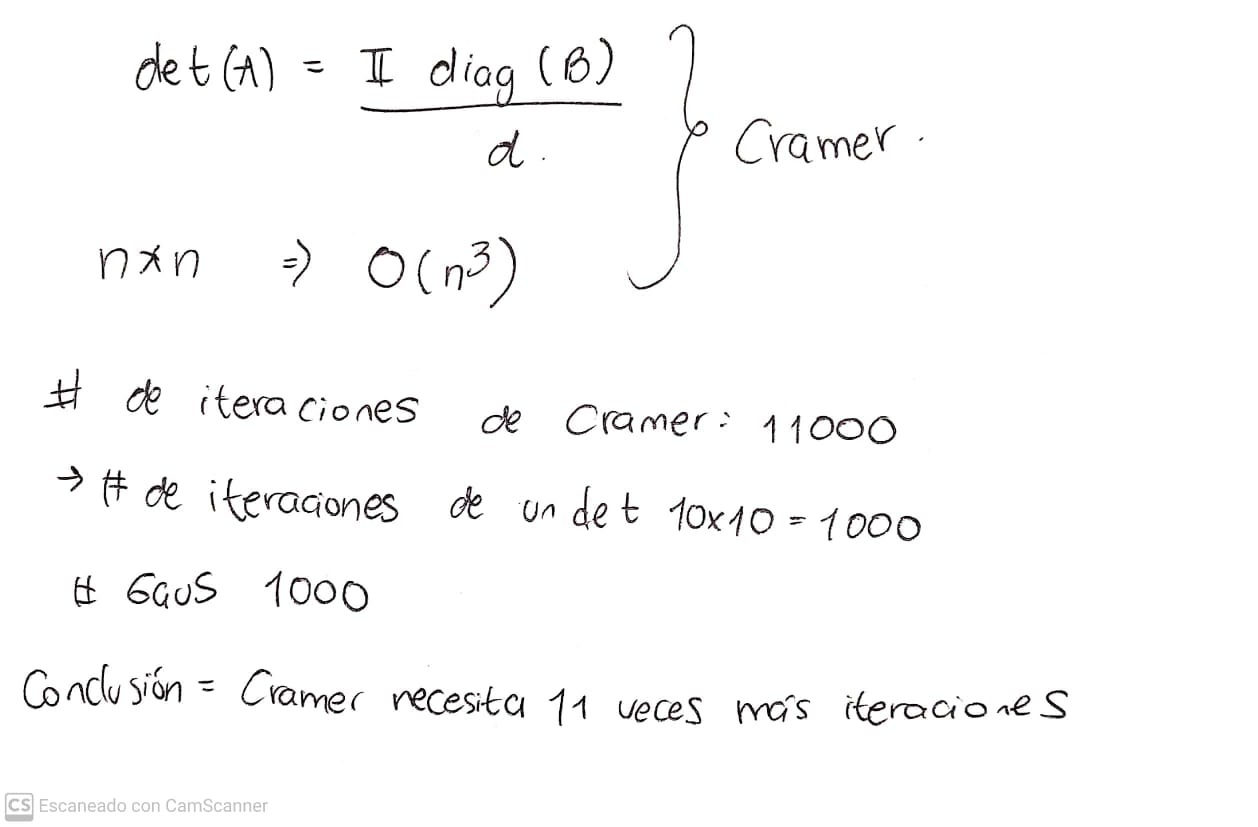 det(A) = Π diag (B)
d.
Cramer.
n*n ⇒ O(n³)
# de iteraciones de Cramer: 11000
→ # de iteraciones de un det 10x10 = 1000
# Gaus 1000
Conclusión = Cramer necesita 11 veces más iteraciones
CS Escaneado con CamScanner